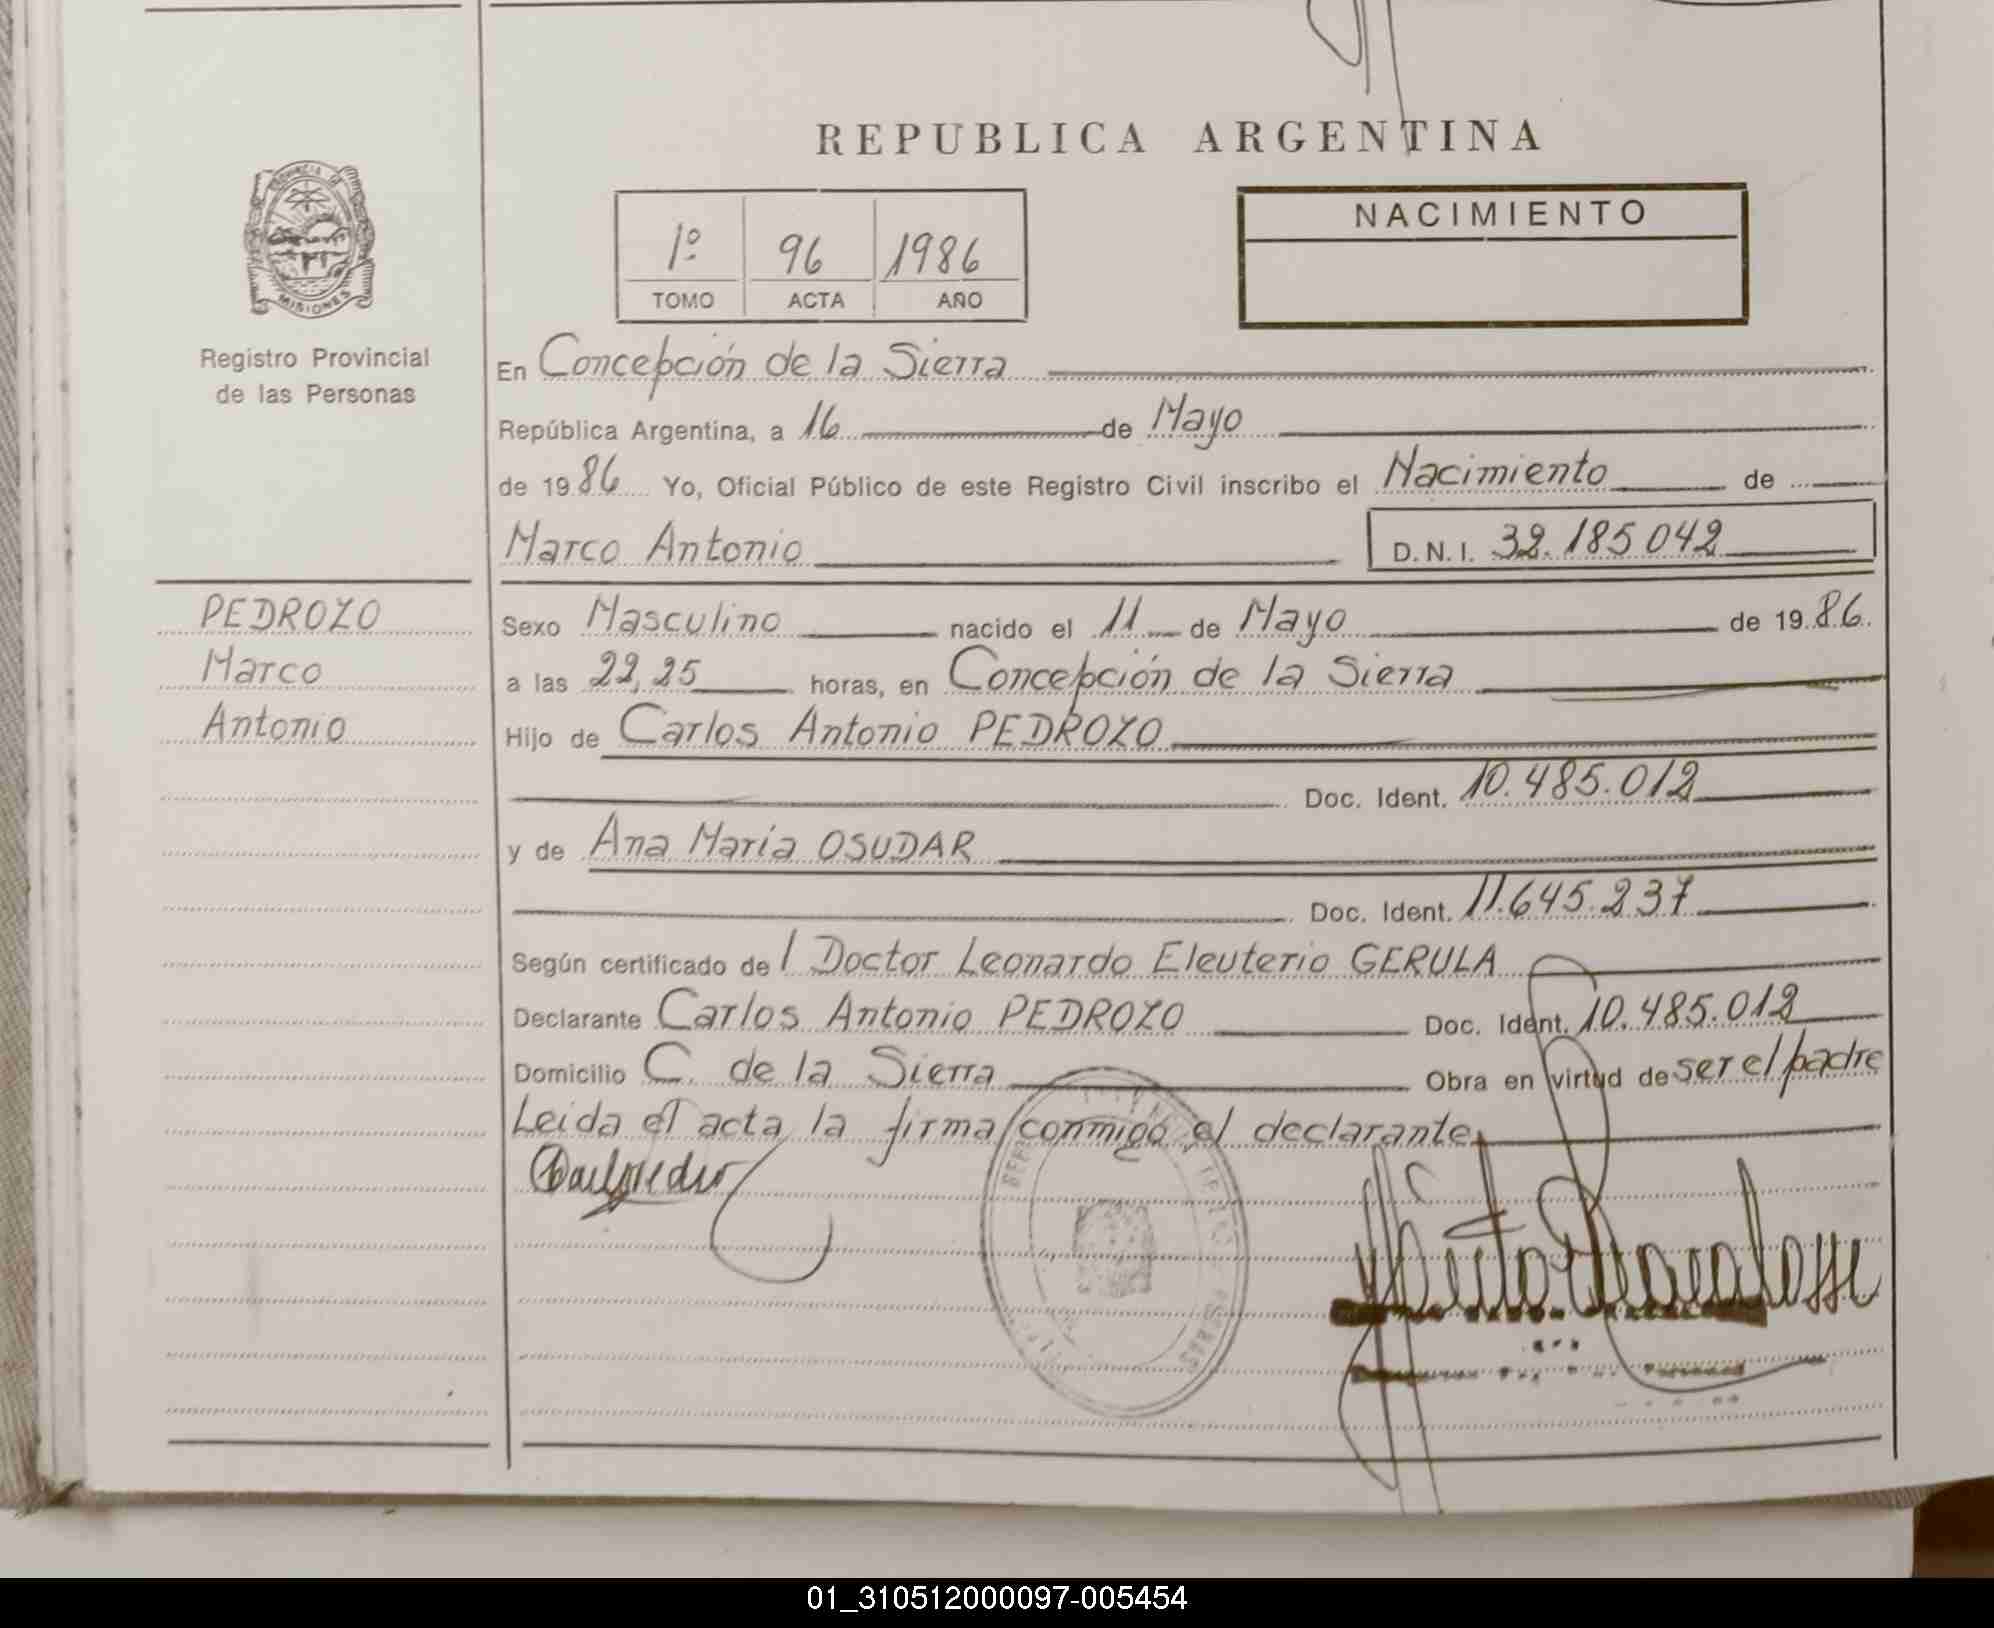 REPUBLICA ARGENTINA
1º 96 1986
TOMO ACTA AÑO
NACIMIENTO
PROVINCIA DE
MISIONES
Registro Provincial
de las Personas
En Concepción de la Sierra
República Argentina, a 16 de Mayo
de 1986 Yo, Oficial Público de este Registro Civil inscribo el Nacimiento de
Marco Antonio D.N.I. 32.185.042
PEDROZO
Marco
Antonio
Sexo Masculino nacido el 11 de Mayo de 1986.
a las 22,25 horas, en Concepción de la Sierra
Hijo de Carlos Antonio PEDROZO
Doc. Ident. 10.485.012
y de Ana María OSUDAR
Doc. Ident. 11.645.237
Según certificado del Doctor Leonardo Eleuterio GERULA
Declarante Carlos Antonio PEDROZO Doc. Ident. 10.485.012
Domicilio C. de la Sierra Obra en virtud de ser el padre
Leida el acta, la firma conmigo el declarante
01_310512000097-005454